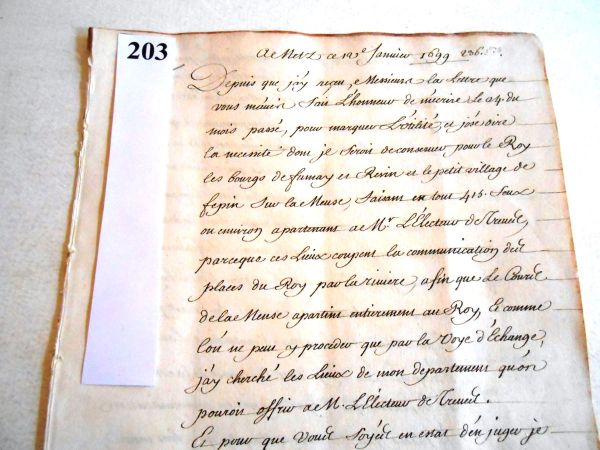 203
A Metz ce 12e Janvier 1699 236.
Depuis que j'ay reçeu, Messieurs la Lettre que
vous m'auéz fait L'honneur de m'ecrire le 24. du
mois passé, pour marquer L'vtilité, et j'ose dire
la necessité dont je seroit de conseruer pour le Roy
les bourgs de fumay et Revin et le petit village de
fepin sur la Meuse, faisans en tout 415. feux
ou enuiron apartenant a Mr. L'Electeur de Treues,
parceque ces Lieux coupent la communication des
places du Roy par la riuiere, afin que Le Cours
de la Meuse apartint entierement au Roy, Et comme
l'on ne peut y procéder que par la Voye d'Echange,
j'ay cherché les Lieux de mon departement qu'on
pouroit offrir a M. L'Electeur de Treues.
Et pour que Vous soyéz en estat d'en juger je